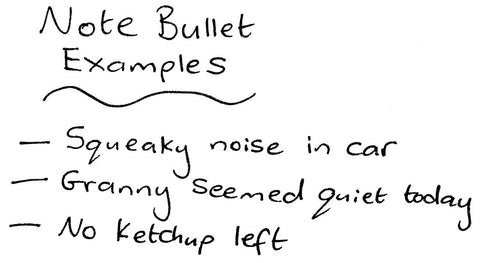 Note Bullet
Examples
– Squeaky noise in car
– Granny seemed quiet today
– No Ketchup left